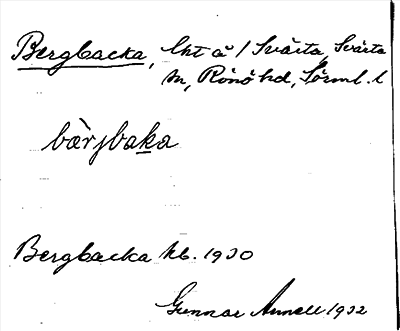 Bergbacka, lht å / Svärta, Svärta
sn, Rönö hd, Sörml. l
bàrjbaka
Bergbacka kb. 1930
Gunnar Annell 1932